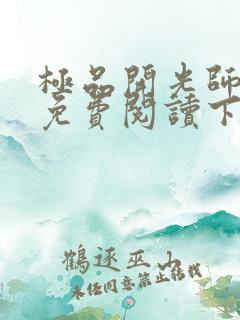 極品開光師
免費閱讀下
鶴逐巫山
未经同意禁止转载